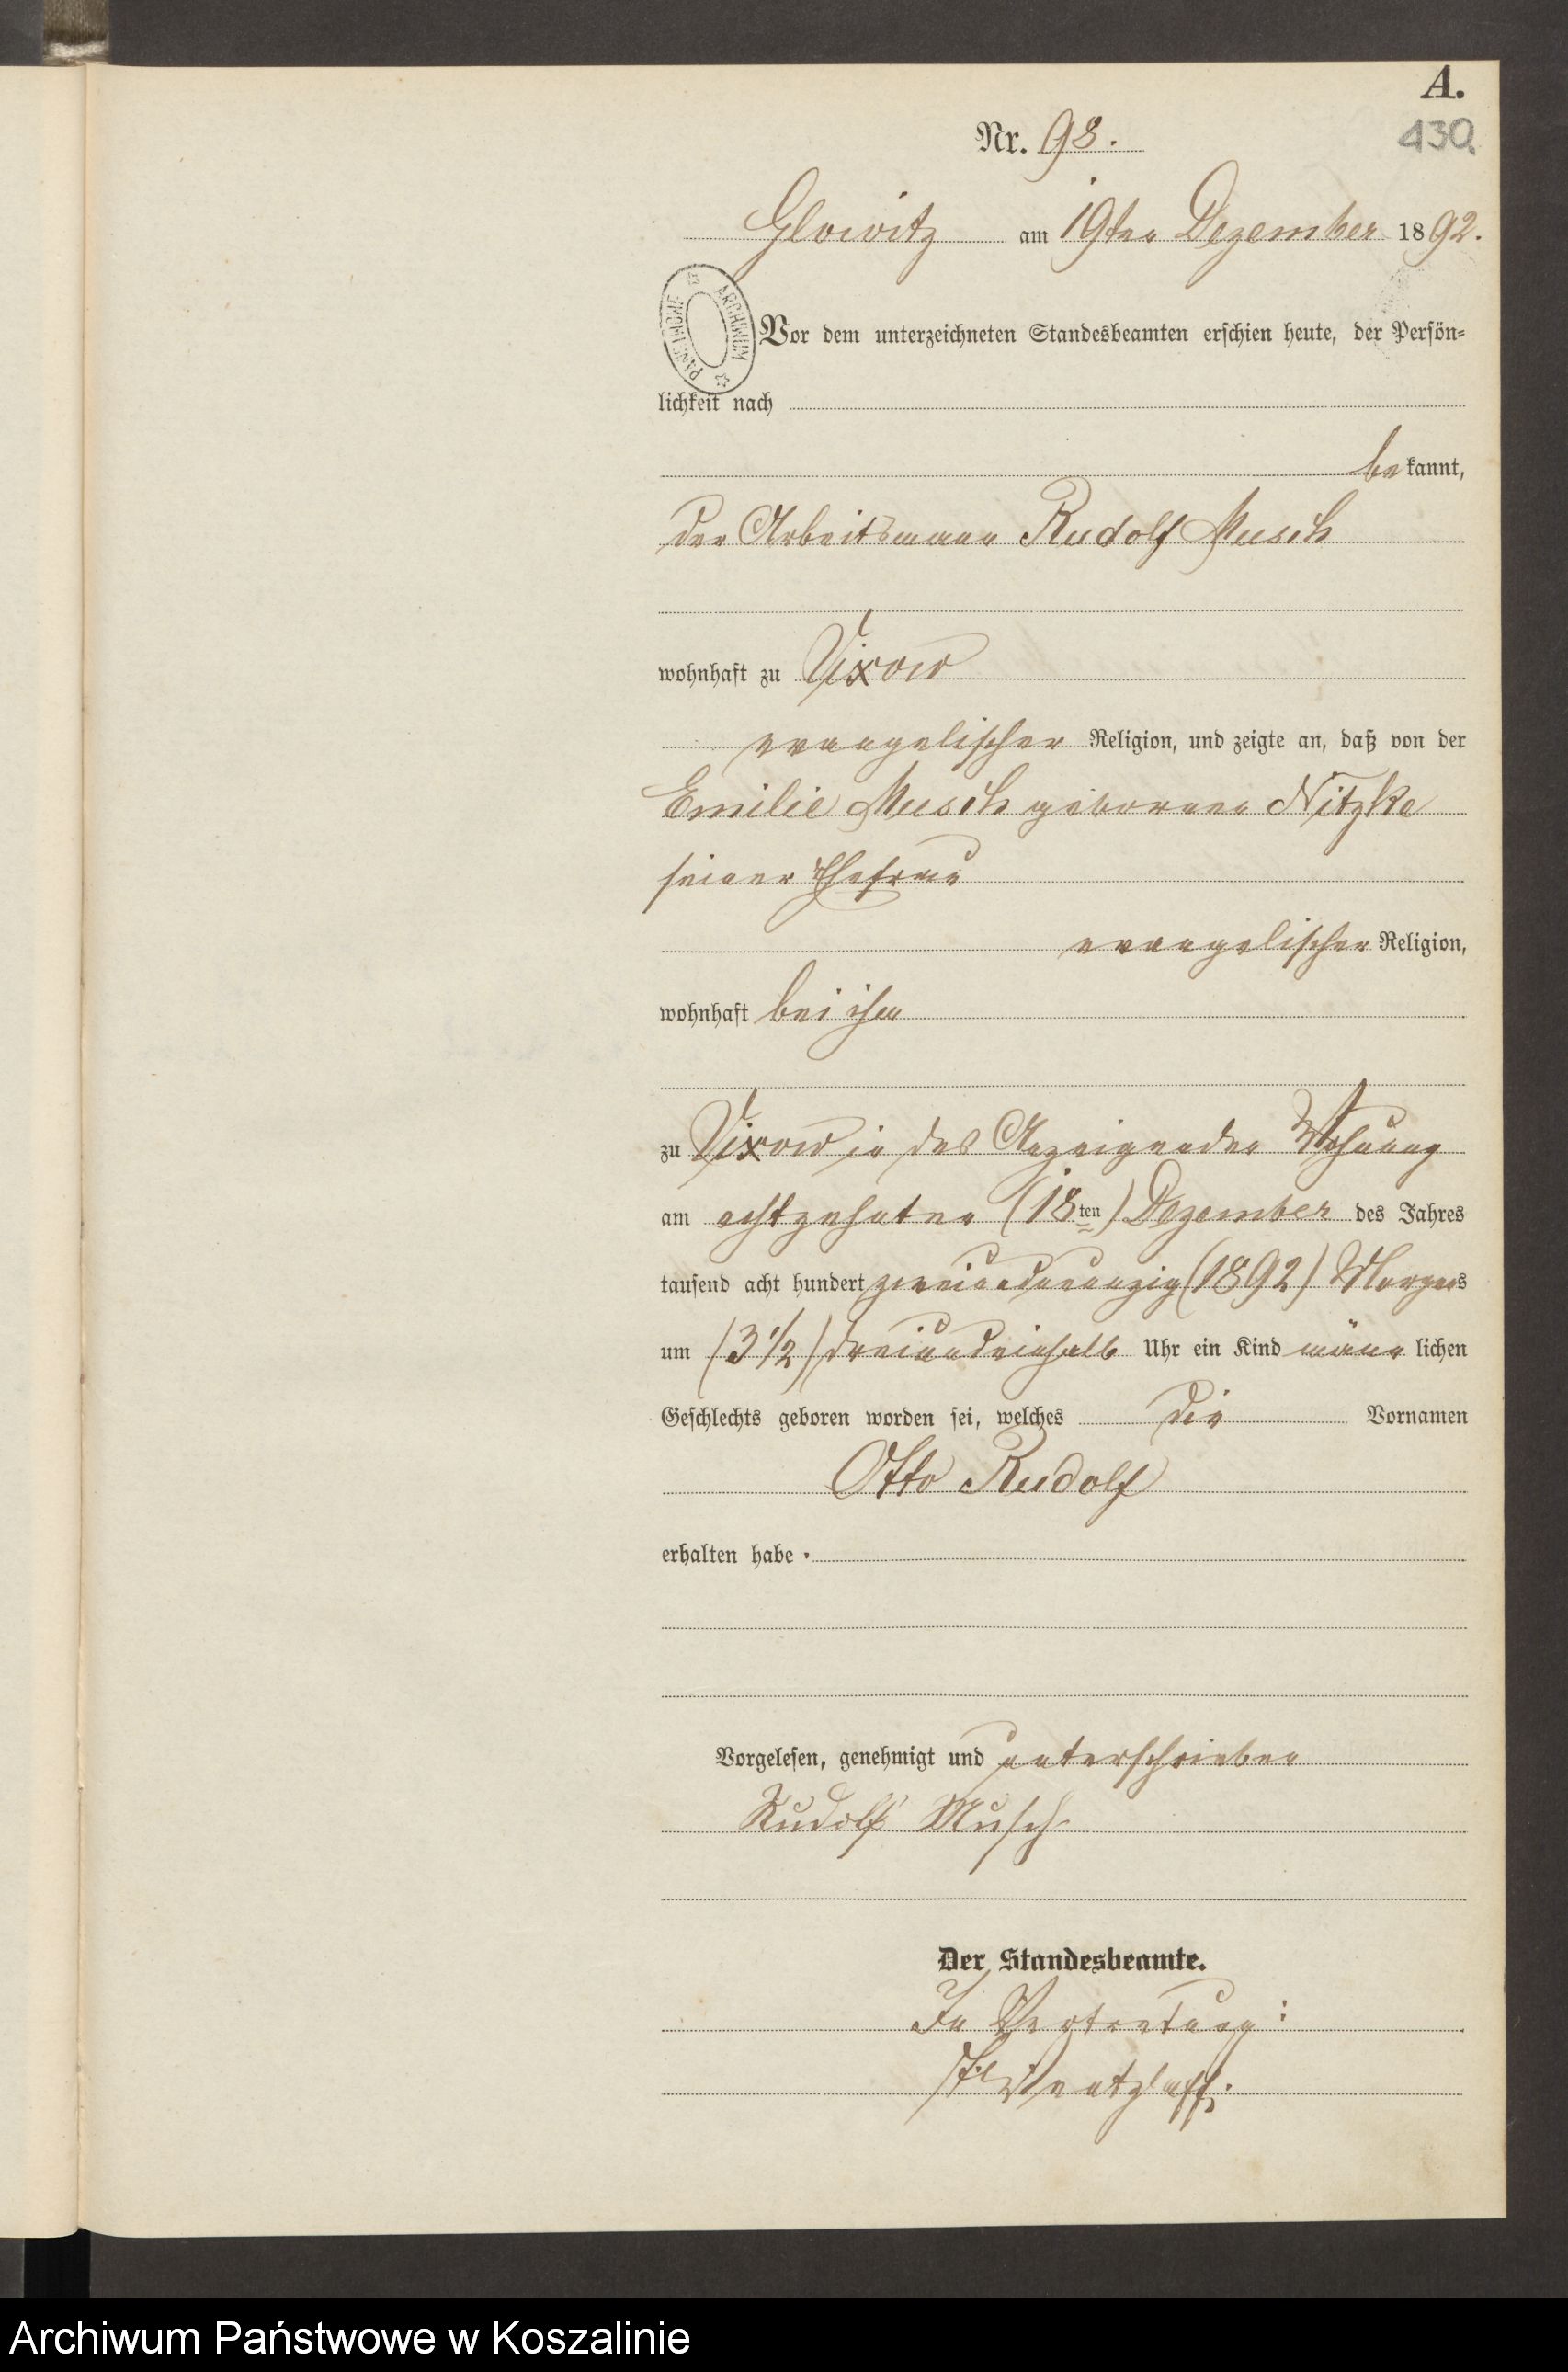 A.
Nr. 98.
430.
Glowitz am 19ten Dezember 1892.
ARCHIWUM PAŃSTWOWE
Vor dem unterzeichneten Standesbeamten erschien heute, der Persön=
lichkeit nach
bekannt,
der Arbeitsmann Rudolf Musch
wohnhaft zu Vixow
evangelischer Religion, und zeigte an, daß von der
Emilie Musch geborenen Nitzke
seiner Ehefrau
evangelischer Religion,
wohnhaft bei ihm
zu Vixow in des Anzeigenden Wohnung
am achtzehnten (18ten) Dezember des Jahres
tausend acht hundert zweiundneunzig (1892) Morgens
um (3 1/2) dreiundeinhalb Uhr ein Kind männlichen
Geschlechts geboren worden sei, welches die Vornamen
Otto Rudolf
erhalten habe.
Vorgelesen, genehmigt und unterschrieben
Rudolf Musch
Der Standesbeamte.
In Vertretung:
Wentzlaff.
Archiwum Państwowe w Koszalinie